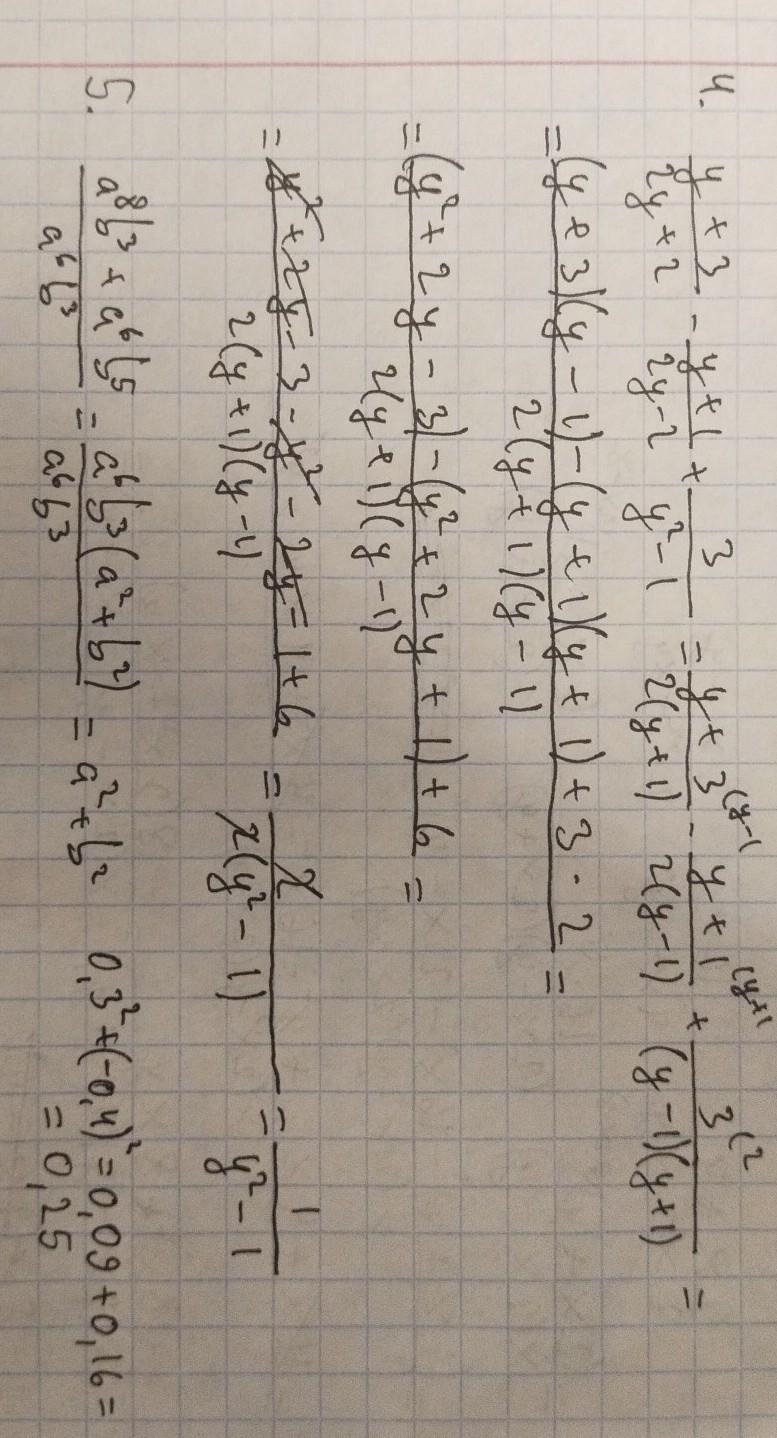 4. (y + 3)/(2y + 2) - (y + 1)/(2y - 2) + 3/(y² - 1) = (y + 3 (y-1)/(2(y+1)) - (y + 1 (y+1)/(2(y-1)) + 3 (2/((y-1)(y+1)) =
= ((y + 3)(y - 1) - (y + 1)(y + 1) + 3 · 2)/(2(y + 1)(y - 1)) =
= ((y² + 2y - 3) - (y² + 2y + 1) + 6)/(2(y + 1)(y - 1)) =
= (y² + 2y - 3 - y² - 2y - 1 + 6)/(2(y + 1)(y - 1)) = 2/(2(y² - 1)) = 1/(y² - 1)
5. (a⁸b³ + a⁶b⁵)/(a⁶b³) = (a⁶b³(a² + b²))/(a⁶b³) = a² + b² 0,3² + (-0,4)² = 0,09 + 0,16 =
= 0,25